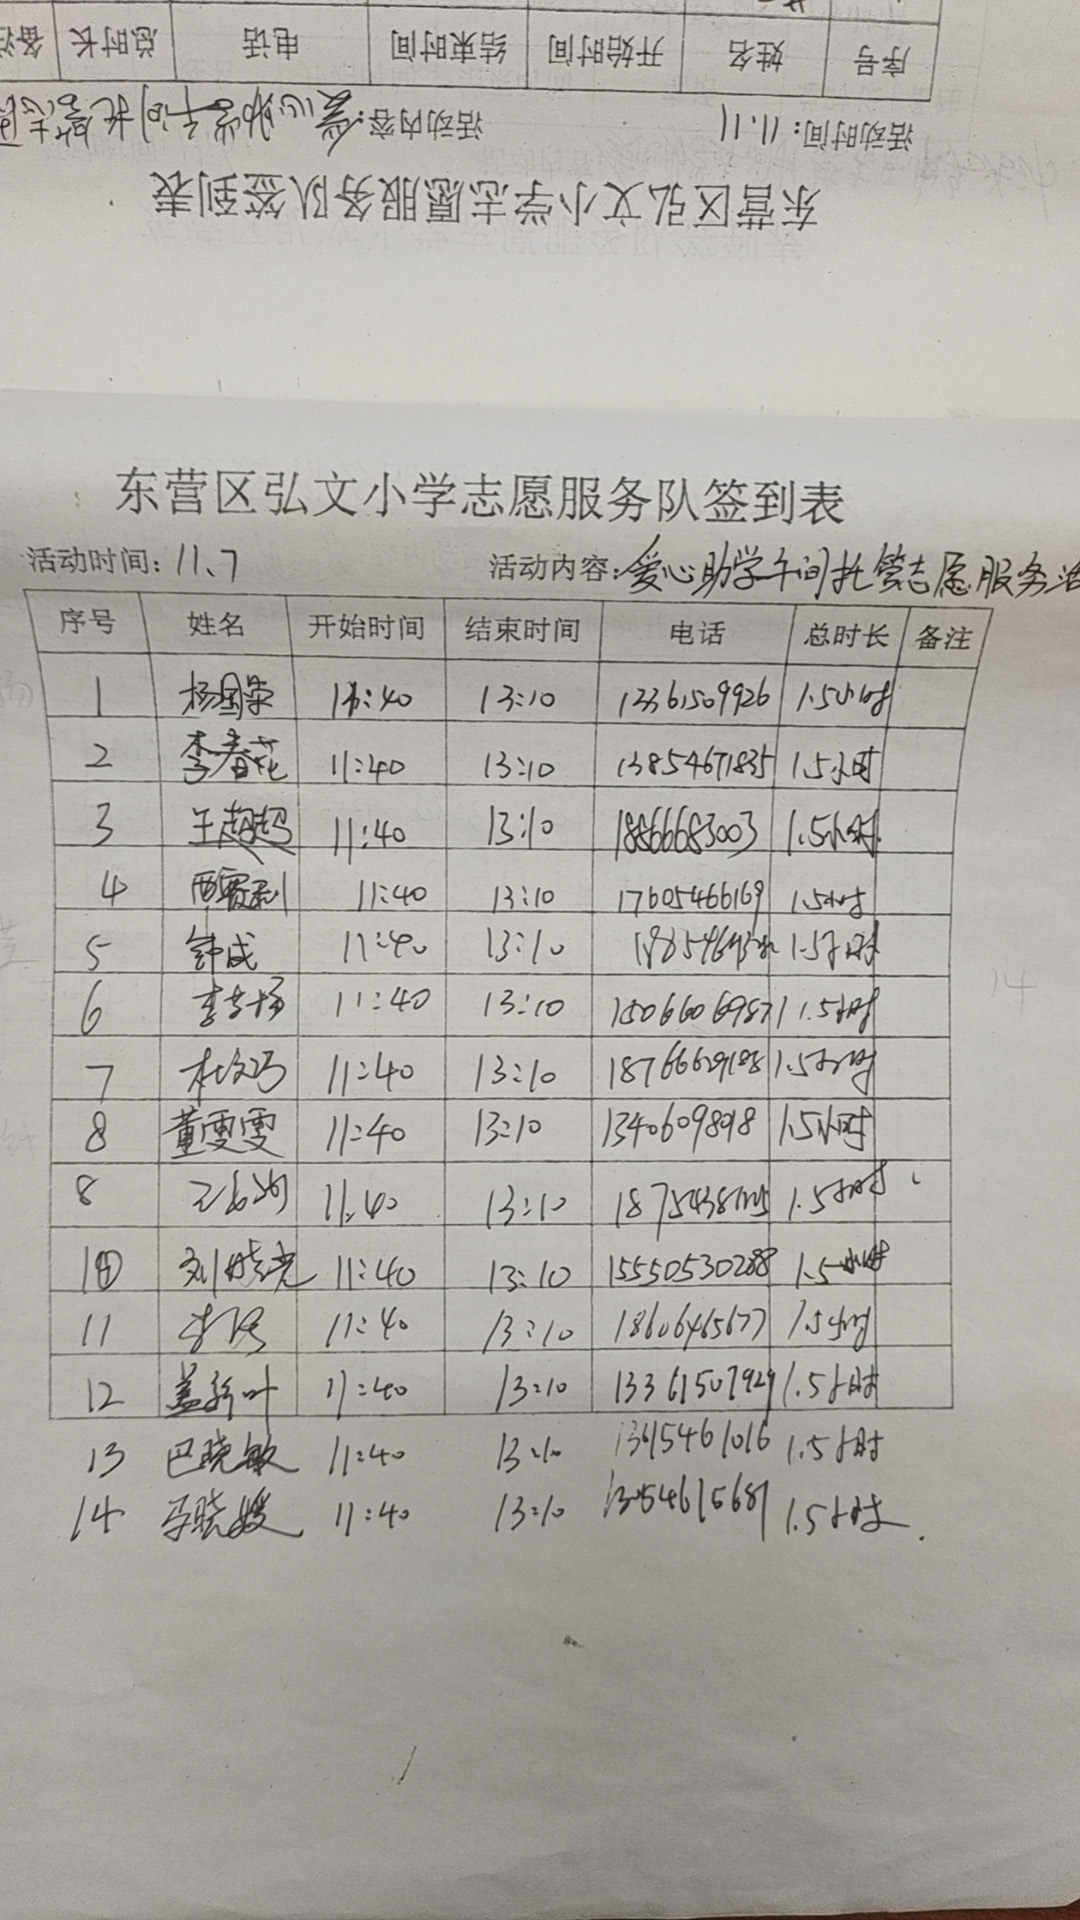 序号 姓名 开始时间 结束时间 电话 总时长
活动时间：11.11 活动内容：爱心助学午间托管志愿
东营区弘文小学志愿服务队签到表
东营区弘文小学志愿服务队签到表
活动时间：11、7 活动内容：爱心助学午间托管志愿服务活
序号 姓名 开始时间 结束时间 电话 总时长 备注
1 杨国荣 11:40 13:10 13361509926 1.5小时
2 李春花 11:40 13:10 13854671835 1.5小时
3 王超超 11:40 13:10 18866683003 1.5小时
4 11:40 13:10 17605466169 1.5小时
5 钟成 11:40 13:10 1.5小时
6 11:40 13:10 15066069871 1.5小时
7 杜文巧 11:40 13:10 1.5小时
8 董雯雯 11:40 13:10 13406098918 1.5小时
8 11:40 13:10 1.5小时
10 刘晓亮 11:40 13:10 15550530288 1.5小时
11 11:40 13:10 18606465677 1.5小时
12 盖新叶 11:40 13:10 13361507929 1.5小时
13 巴晓敏 11:40 13:10 1.5小时
14 11:40 13:10 1.5小时